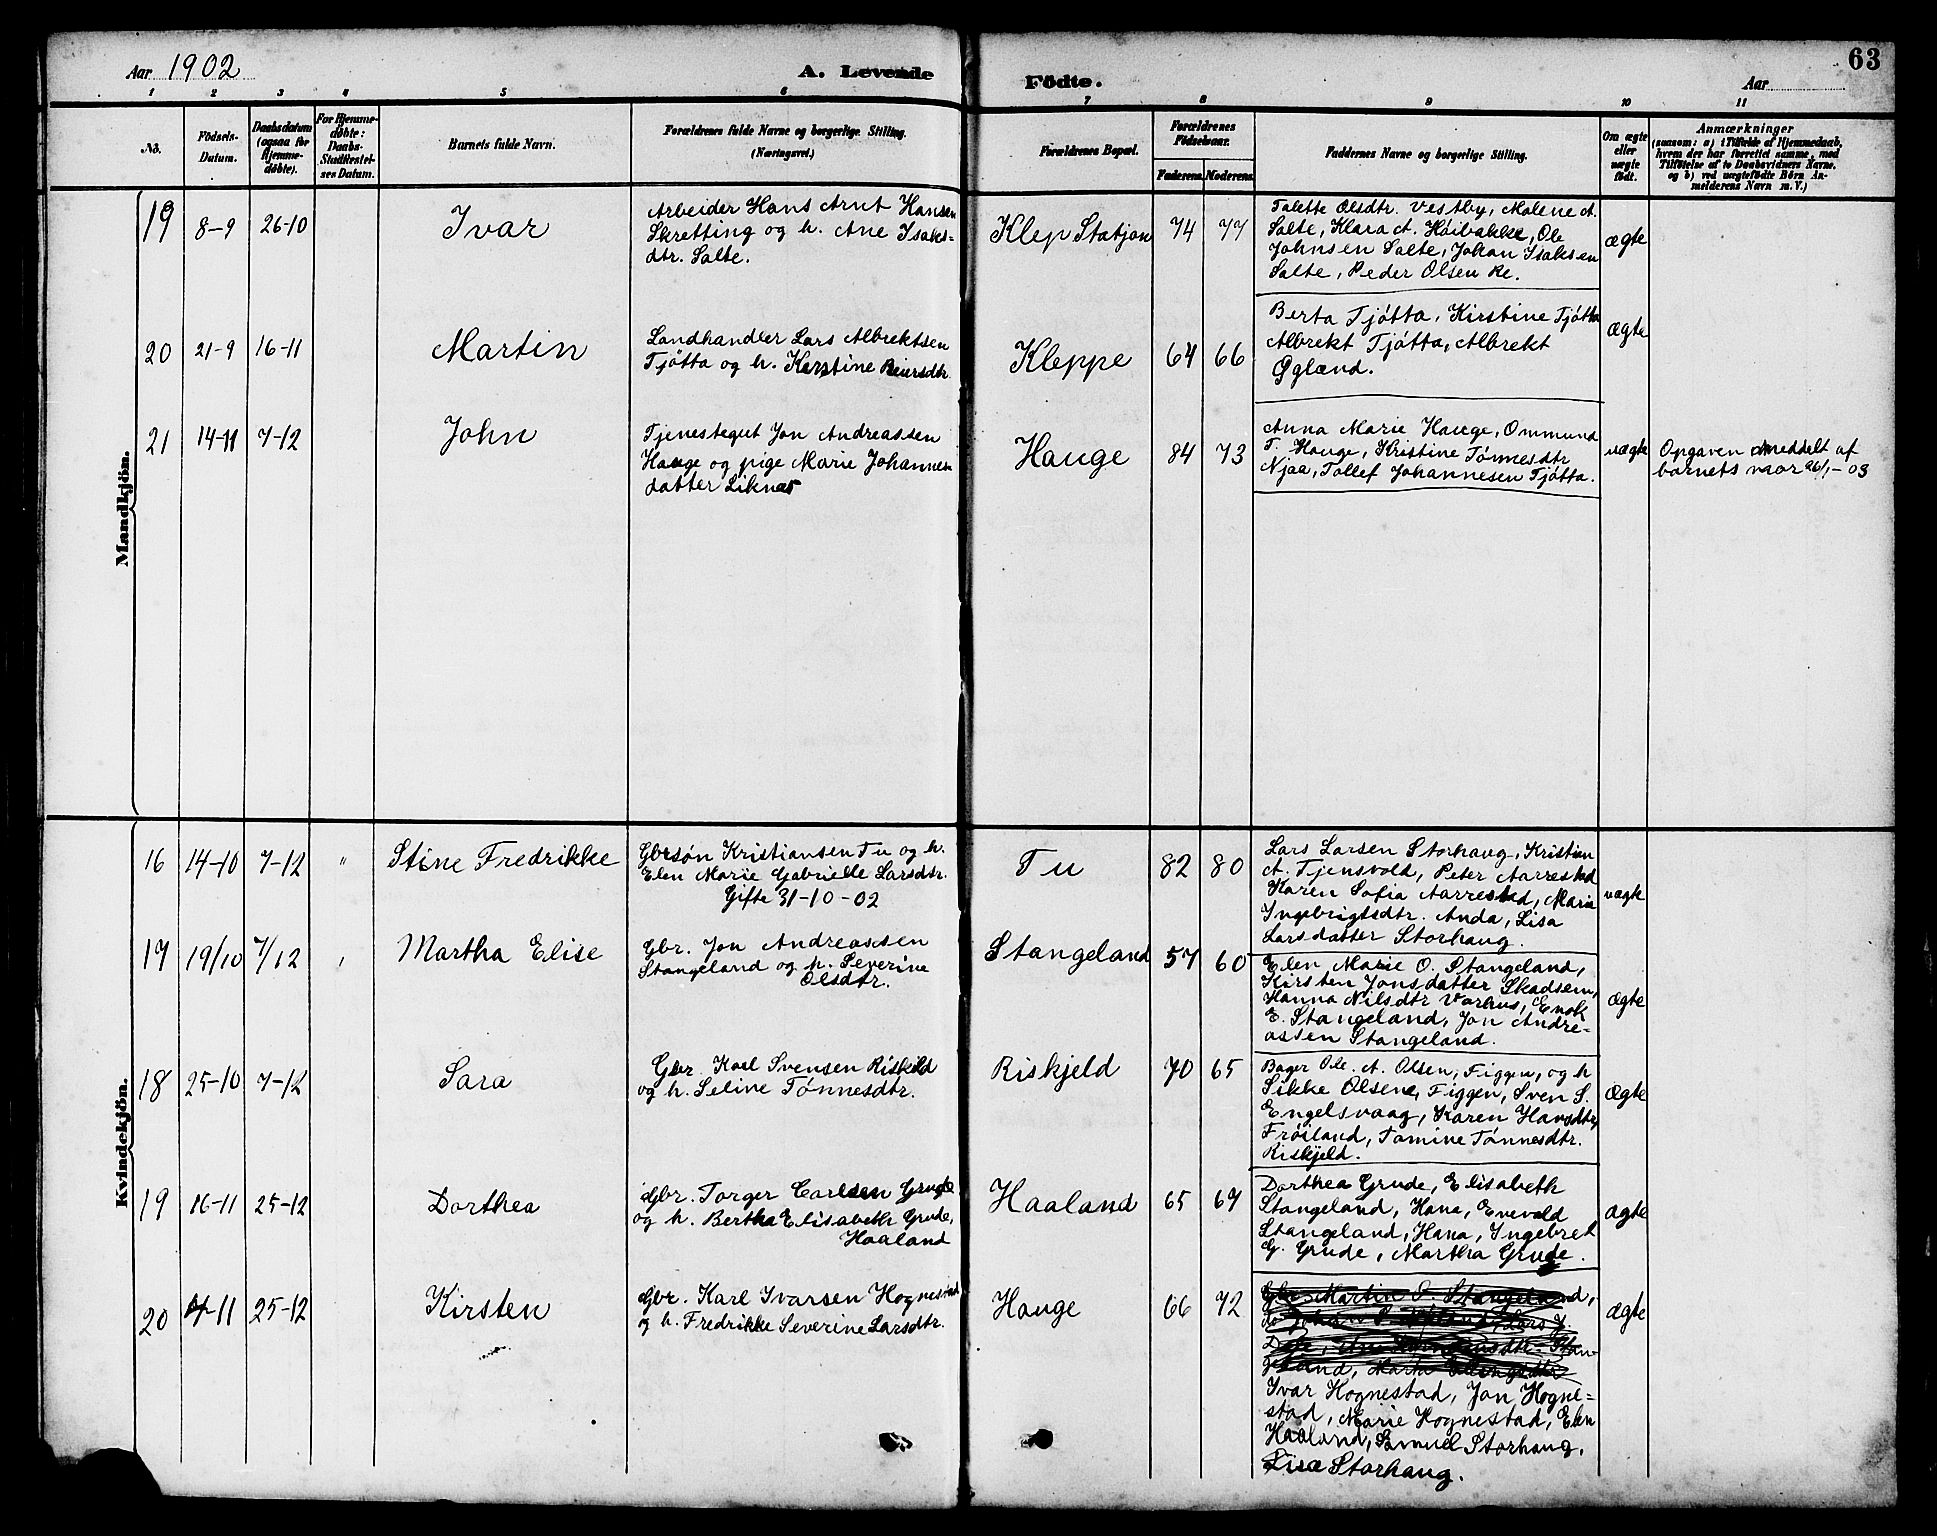 63
Aar 1902
A. Levende Fødte.
Aar
1 2 3 4 5 6 7 8 9 10 11
No.
Födsels-
Datum.
Daabsdatum
(ogsaa for
Hjemme-
døbte).
For Hjemme-
døbte:
Daabs-
Stadfæstel-
ses Datum.
Barnets fulde Navn.
Forældrenes fulde Navne og borgerlige Stilling.
(Næringsvei.)
Forældrenes Bopæl.
Forældrenes
Födselsaar.
Faderens. Moderens.
Faddernes Navne og borgerlige Stilling.
Om ægte
eller
uægte
født.
Anmærkninger
(saasom: a) i Tilfælde af Hjemmedaab,
hvem der har forrettet samme, med
Tilføielse af to Daabsvidners Navne,
og b) ved uægtefødte Børn An-
melderens Navn m. V.)
Mandkjön.
19 8-9 26-10 Ivar
Arbeider Hans Arnt Hansen
Skretting og h. Ane Isaks-
dtr. Salte.
Klep Statjon 74 77
Talette Olsdtr. Vestby, Malene A.
Salte, Klara A. Høibakke, Ole
Johnsen Salte, Johan Isaksen
Salte, Peder Olsen Re.
ægte
20 21-9 16-11 Martin
Landhandler Lars Albrektsen
Tjøtta og h. Kerstine Beiersdtr
Kleppe 64 66
Berta Tjøtta, Kirstine Tjøtta
Albrekt Tjøtta, Albrekt
Øgland.
ægte
21 14-11 7-12 John
Tjenestegut Jon Andreassen
Hauge og pige Marie Johannes
datter Liknes
Hauge 84 73
Anna Marie Hauge, Ommund
T. Hauge, Kristine Tønnesdtr
Njaa, Tollef Johannesen Tjøtta.
uægte
Opgaven meddelt af
barnets mor 26/1-03
Kvindekjön.
16 14-10 7-12 " Stine Fredrikke
Gbrsøn Kristiansen Tu og h.
Elen Marie Gabrielle Larsdtr.
Gifte 31-10-02
Tu 82 80
Lars Larsen Storhaug, Kristian
A. Tjensvold, Peter Aarrestad
Karen Sofia Aarrestad, Marie
Ingebrigtsdtr. Anda, Lisa
Larsdatter Storhaug.
uægte
17 19/10 7/12 Martha Elise
Gbr. Jon Andreassen
Stangeland og h. Severine
Olsdtr.
Stangeland 57 60
Elen Marie O. Stangeland,
Kirsten Jonsdatter Skadsem,
Hanna Nilsdtr Varhus, Enok
E. Stangeland, Jon Andre-
assen Stangeland.
Ægte
18 25-10 7-12 Sara
Gbr. Karl Svensen Riskjeld
og h. Seline Tønnesdtr.
Riskjeld 70 65
Bager Ole. A. Olsen, Figgen, og h
Sikke Olsene, Figgen, Sven S.
Engelsvaag, Karen Hansdtr,
Frøiland, Tomine Tønnesdtr.
Riskjeld.
Ægte
19 16-11 25-12 Dorthea
Gbr. Torger Carlsen Grude
og h. Bertha Elisabeth Grude,
Haaland
Haaland 65 69
Dorthea Grude, Elisabeth
Stangeland, Hana, Enevald
Stangeland, Hana, Ingebret
G. Grude, Martha Grude.
ægte
20 4-11 25-12 Kirsten
Gbr. Karl Ivarsen Hognestad
og h. Fredrikke Severine Larsdtr.
Hauge 66 72
Gbr. Martin O. Stangeland,
Ivar Hognestad, Jon Hogne-
stad, Marie Hognestad, Elen
Haaland, Samuel Storhaug,
Lisa Storhaug.
Ægte